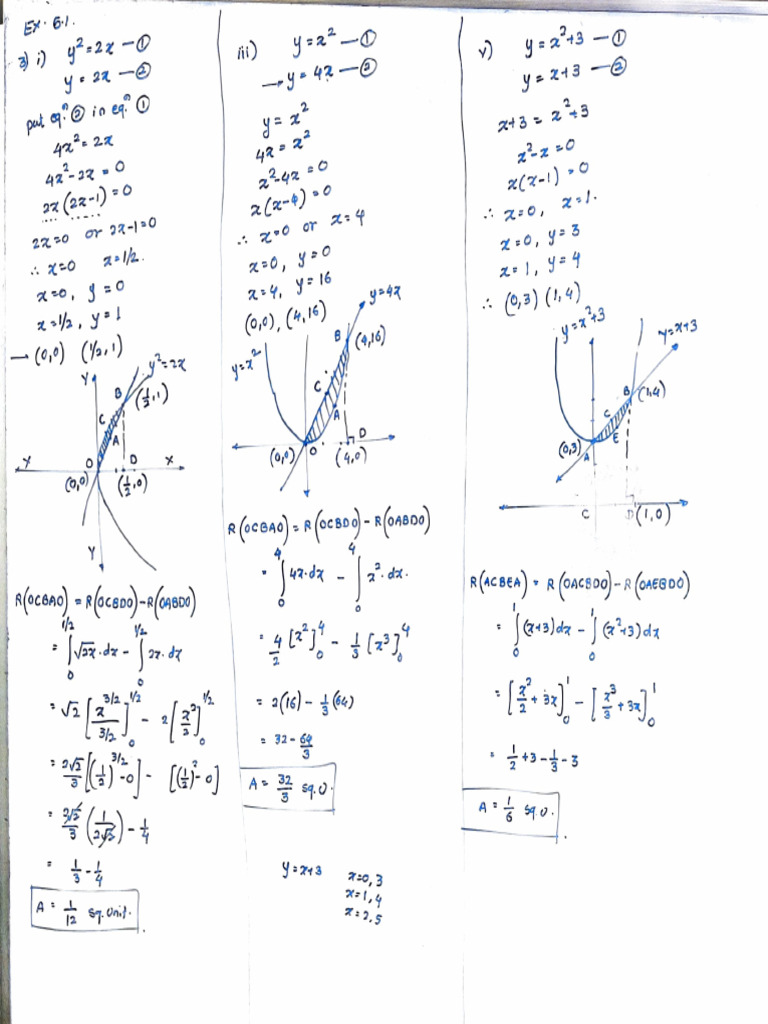 Ex. 6.1.
3) i) y² = 2x —①
y = 2x —②
put eqⁿ ② in eqⁿ ①
4x² = 2x
4x² - 2x = 0
2x(2x-1) = 0
2x=0 or 2x-1=0
∴ x=0 x=1/2.
x=0, y=0
x=1/2, y=1
→ (0,0) (1/2,1)
Y
y²=2x
B
(1/2,1)
C
A
Y O D X
(0,0) (1/2,0)
Y
R(OCBAO) = R(OCBDO) - R(OABDO)
= ∫₀^{1/2} √2x·dx - ∫₀^{1/2} 2x·dx
= √2 [x^{3/2}/(3/2)]₀^{1/2} - 2[x²/2]₀^{1/2}
= 2√2/3 [(1/2)^{3/2} - 0] - [(1/2)² - 0]
= 2√2/3 (1/2√2) - 1/4
= 1/3 - 1/4
A = 1/12 sq. unit.
iii) y = x² —①
→ y = 4x —②
y = x²
4x = x²
x² - 4x = 0
x(x-4) = 0
∴ x=0 or x=4
x=0, y=0
x=4, y=16
(0,0), (4,16)
y=4x
y=x²
B
(4,16)
C
A
O D
(0,0) (4,0)
R(OCBAO) = R(OCBDO) - R(OABDO)
= ∫₀⁴ 4x·dx - ∫₀⁴ x²·dx.
= 4/2 [x²]₀⁴ - 1/3 [x³]₀⁴
= 2(16) - 1/3 (64)
= 32 - 64/3
A = 32/3 sq.U.
y = x+3 x=0,3
x=1,4
x=2,5
v) y = x²+3 —①
y = x+3 —②
x+3 = x²+3
x²-x = 0
x(x-1) = 0
∴ x=0, x=1.
x=0, y=3
x=1, y=4
∴ (0,3) (1,4)
y=x²+3
y=x+3
B
(1,4)
C
E
(0,3)
A
C D(1,0)
R(ACBEA) = R(OACBDO) - R(OAEBDO)
= ∫₀¹ (x+3)dx - ∫₀¹ (x²+3)dx
= [x²/2 + 3x]₀¹ - [x³/3 + 3x]₀¹
= 1/2 + 3 - 1/3 - 3
A = 1/6 sq.U.